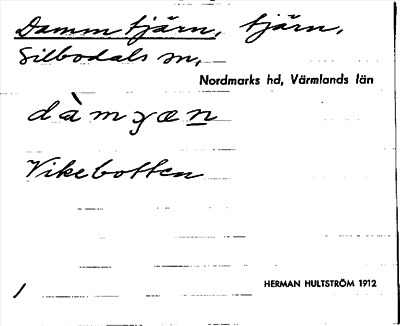 Dammtjärn, tjärn,
Silbodals sn,
Nordmarks hd, Värmlands län
dàmȝæn
Vikebotten
/
HERMAN HULTSTRÖM 1912